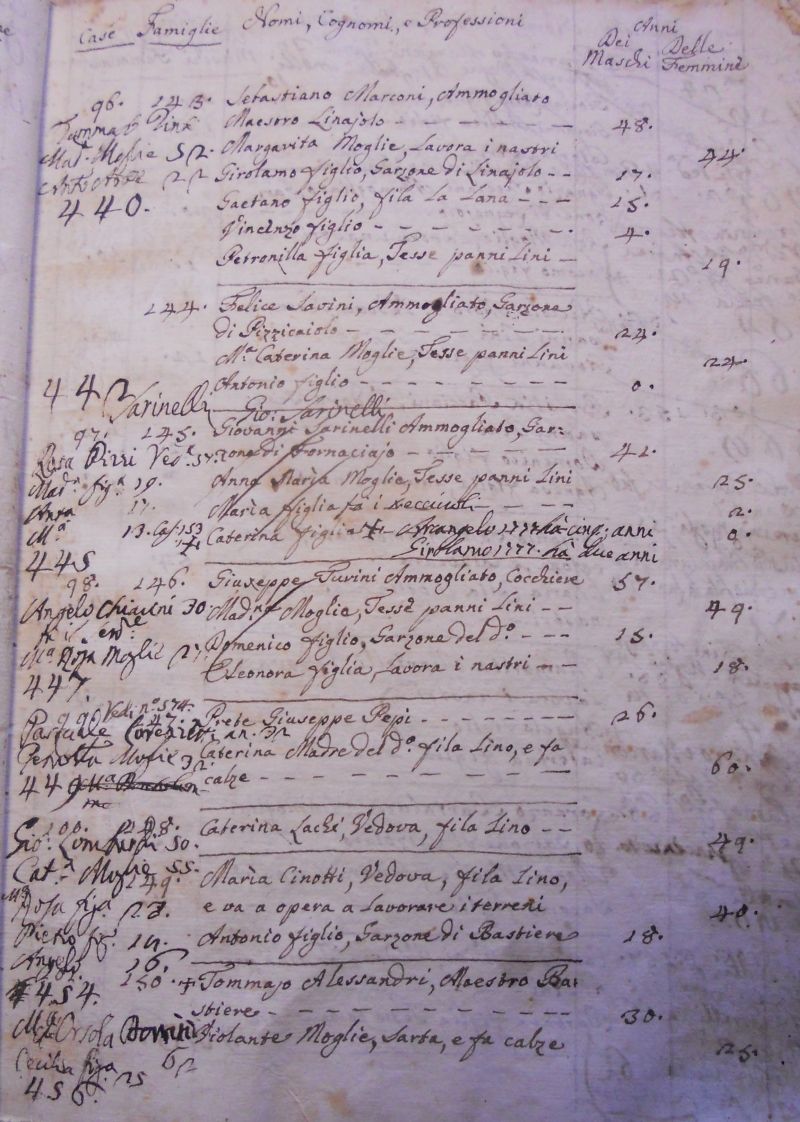 Case Famiglie Nomi, Cognomi, e Professioni Anni
Dei Maschi Delle Femmine
96. 143. Sebastiano Marconi, Ammogliato
Maestro Linajolo - - - 48.
Mad. Moglie 52. Margarita Moglie, Lavora i nastri 44.
22 Girolamo figlio, Garzone di Linajolo - - 17.
440. Gaetano figlio, fila la Lana - - - 15.
Vincenzo figlio - - - 4.
Petronilla figlia, Tesse panni Lini - 19.
144. Felice Savini, Ammogliato, Garzone
di Pizzicaiolo - - - 24.
M.a Caterina Moglie, Tesse panni Lini 24.
442 Antonio figlio - - - 0.
Sarinelli Gio: Sarinelli
97. 145. Giovanni Sarinelli Ammogliato, Gar:
Rosa Ved.a zone di Fornaciajo - - - 41.
Mad.a fig.a 19. Anna Marìa Moglie, Tesse panni Lini 25.
Anna 17. Marìa figlia fa i - - 2.
M.a 13. Cas. 153 Caterina figlia + Arcangelo 1777. hà cinq; anni 0.
445 Girolamo 1777. hà due anni
98. 146. Giuseppe Turini Ammogliato, Cocchiere 57.
Angelo Chiarini 30 Mad.a Moglie, Tesse panni Lini - - 49.
Domenico figlio, Garzone del d.o - - - 15.
M.a Rosa Moglie Eleonora figlia, Lavora i nastri - - 18.
447.
Vedi n.o 574.
99. 147. Prete Giuseppe Pepi - - - 26.
Pasquale an. 32
Moglie 32. Caterina Madre del d.o fila Lino, e fa
449 calze - - - 60.
100. 148. Caterina Lachi, Vedova, fila Lino - - 49.
Gio: Lombardi 50.
Cat.a Moglie 55.
149. Marìa Cinotti, Vedova, fila Lino,
Rosa fig.a 23. e va a opera a Lavorare i terreni 40.
Pietro fig. 19. Antonio figlio, Garzone di Bastiere 18.
Angelo 16.
454. 150. + Tommaso Alessandri, Maestro Ba:
stiere - - - 30.
Orsola Violante Moglie, Sarta, e fa calze 25.
62
Cecilia figa 25
456.